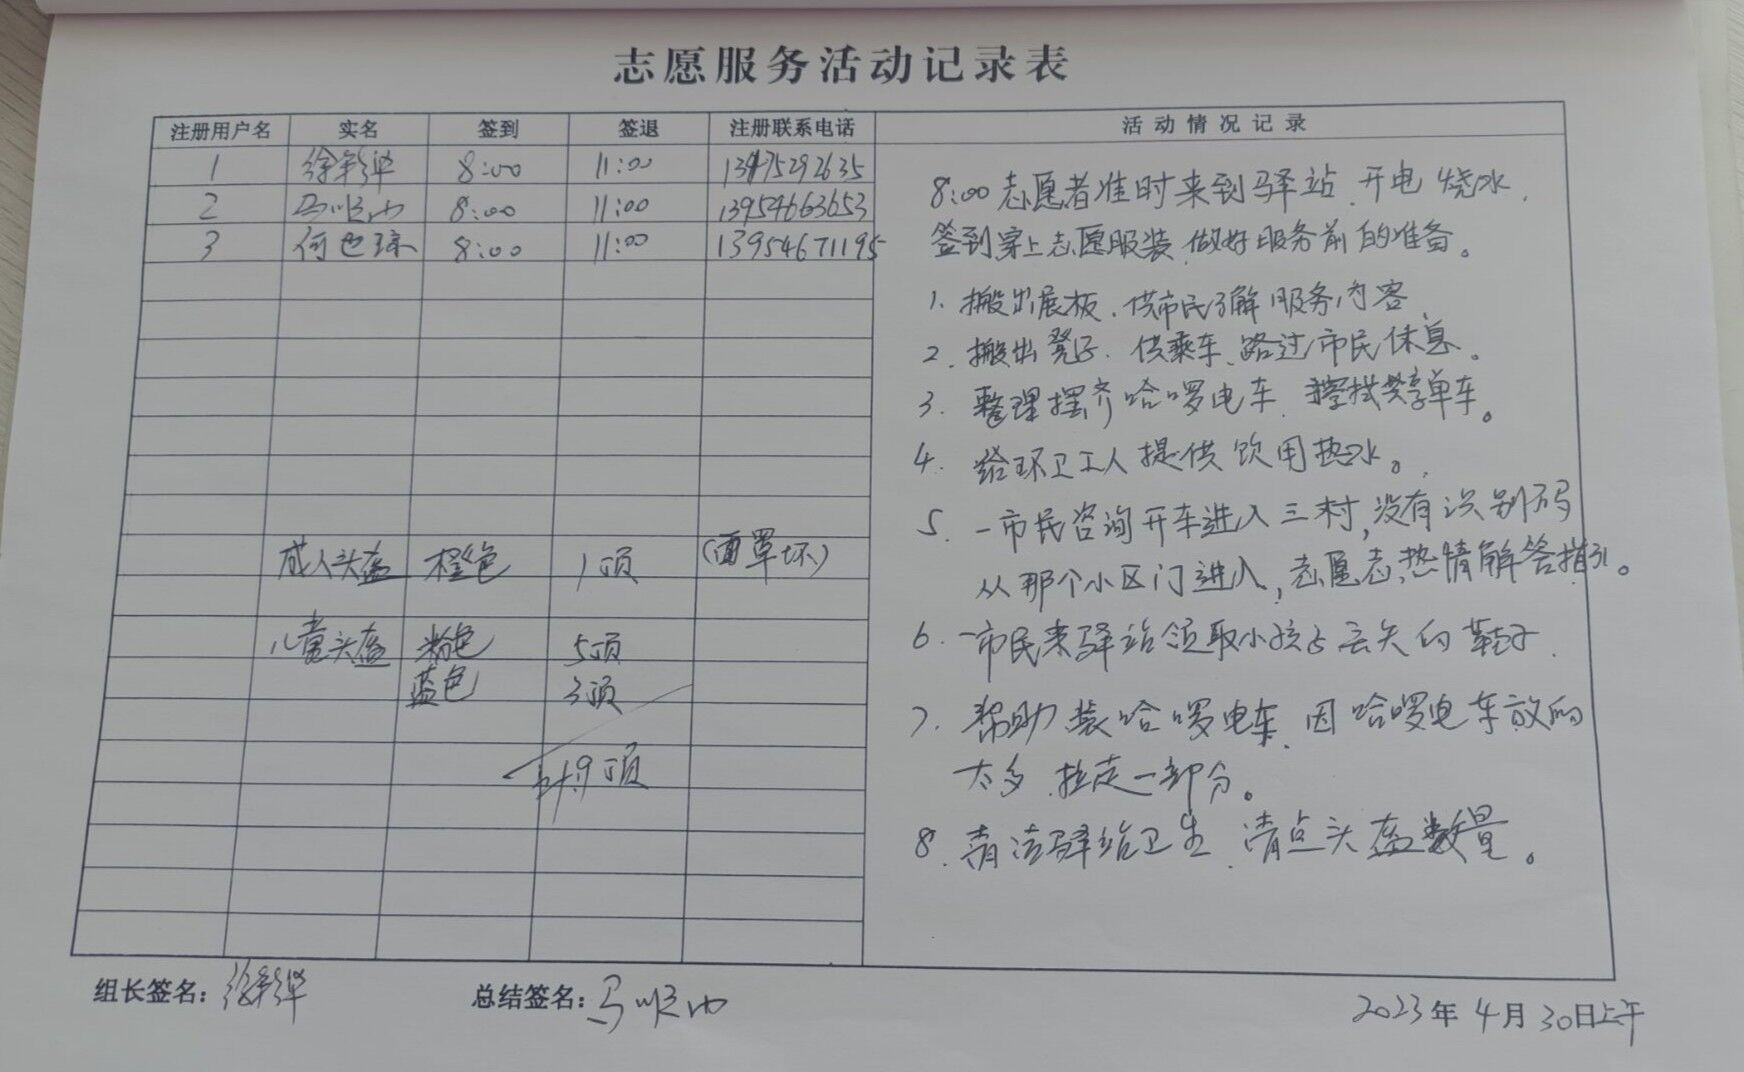 志愿服务活动记录表
注册用户名 实名 签到 签退 注册联系电话 活动情况记录
1 8:00 11:00
2 马顺 8:00 11:00 13954663653
3 何 8:00 11:00 13954671195
成人头盔 橙色 1顶 (面罩坏)
儿童头盔 粉色 5顶
蓝色 3顶
计9顶
8:00志愿者准时来到驿站、开电烧水、
签到穿上志愿服装、做好服务前的准备。
1. 搬出展板、供市民了解服务内容
2. 搬出凳子、供乘车、路过市民休息。
3. 整理摆齐哈啰电车、共享单车。
4. 给环卫工人提供饮用热水。
5. 一市民咨询开车进入三村,没有识别码
从那个小区门进入,志愿志热情解答指引。
6. 一市民来驿站领取小孩丢失的鞋子.
7. 帮助装哈啰电车、因哈啰电车放的
太多、拉走一部分。
8. 清洁驿站卫生、清点头盔数量。
组长签名: 总结签名:马顺
2023年4月30日上午